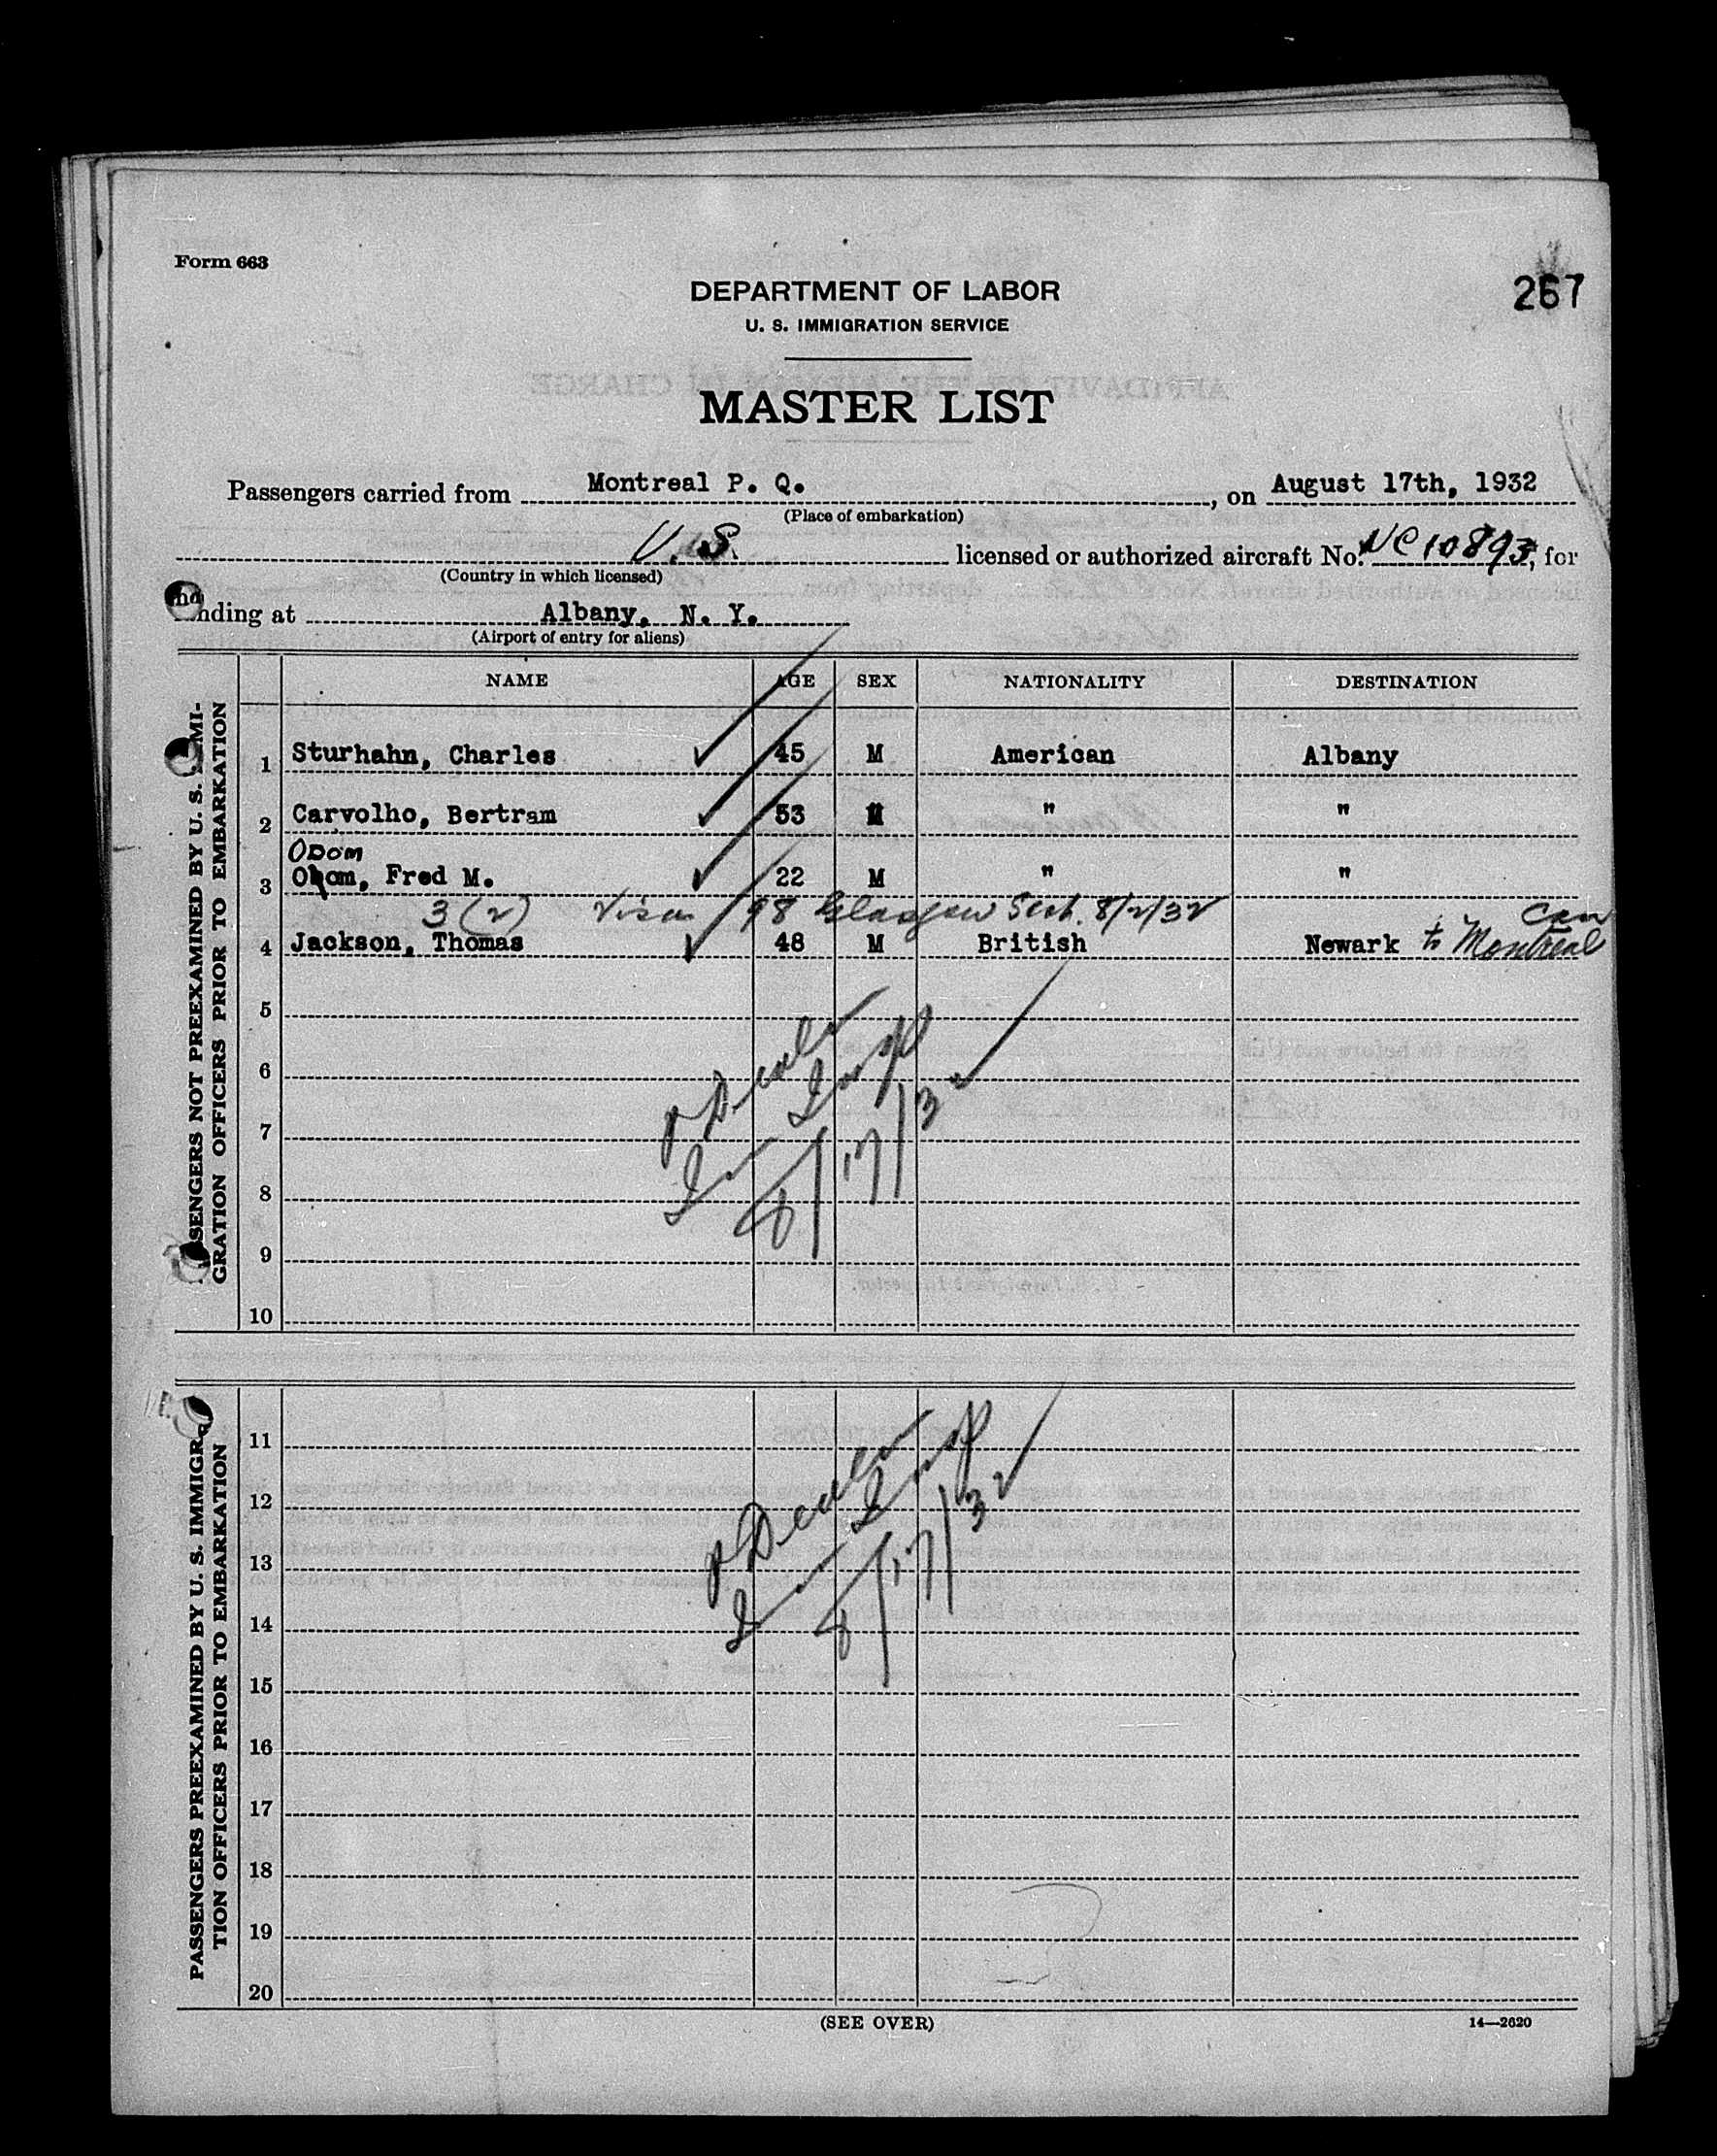 Form 663
267
DEPARTMENT OF LABOR
U. S. IMMIGRATION SERVICE
MASTER LIST
Passengers carried from Montreal P. Q., on August 17th, 1932
(Place of embarkation)
U.S. licensed or authorized aircraft No. NC10893, for
(Country in which licensed)
landing at Albany, N. Y.
(Airport of entry for aliens)
NAME AGE SEX NATIONALITY DESTINATION
PASSENGERS NOT PREEXAMINED BY U. S. IMMI-
GRATION OFFICERS PRIOR TO EMBARKATION
1 Sturhahn, Charles 45 M American Albany
2 Carvolho, Bertram 53 M " "
ODOM
3 Ohom, Fred M. 22 M " "
3(2) Visa 98 Glasgow Scot. 8/2/32 Can
4 Jackson, Thomas 48 M British Newark to Montreal
5
6
7
8
9
10
Insp
8/17/32
PASSENGERS PREEXAMINED BY U. S. IMMIGRA-
TION OFFICERS PRIOR TO EMBARKATION
11
12
13
14
15
16
17
18
19
20
Insp
8/17/32
(SEE OVER)
14—2620